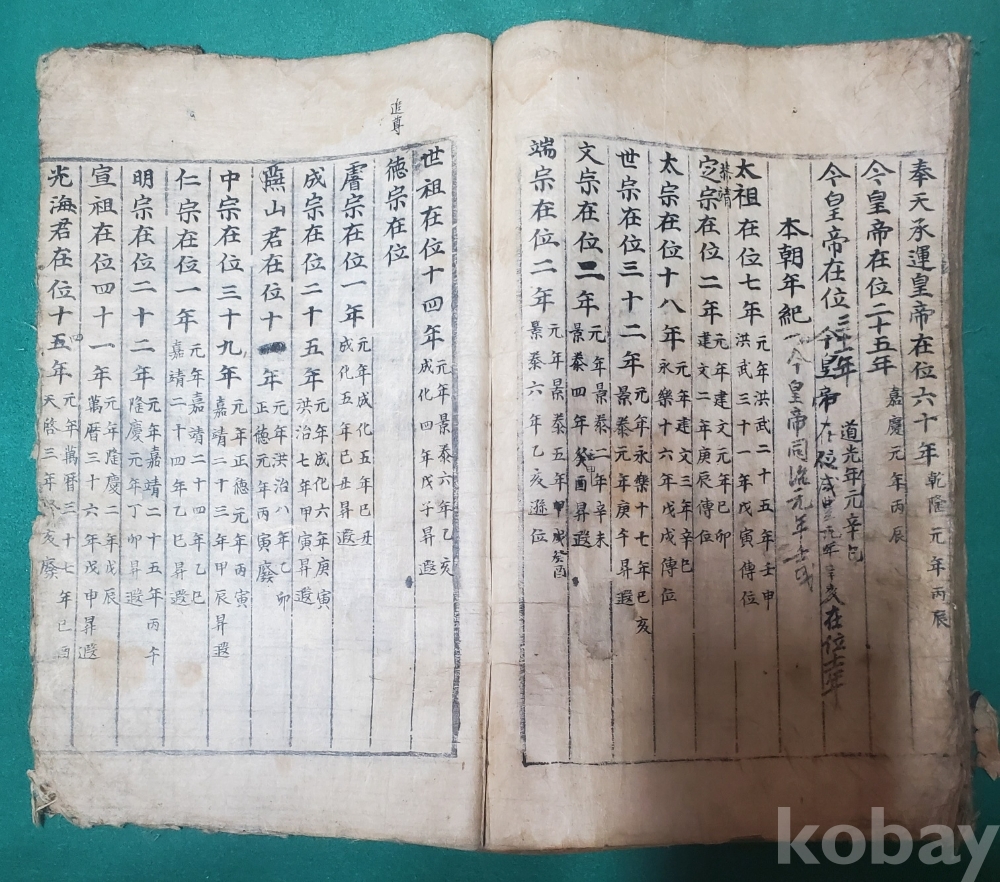 奉天承運皇帝在位六十年 乾隆元年丙辰
今皇帝在位二十五年 嘉慶元年丙辰
今皇帝在位三十年 道光年元辛巳
今皇帝在位 元年辛亥在位十一年
今皇帝同治元年壬戌
本朝年紀
太祖在位七年 元年洪武二十五年壬申 洪武三十一年戊寅傳位
恭靖
定宗在位二年 元年建文元年己卯 建文二年庚辰傳位
太宗在位十八年 元年建文三年辛巳 永樂十六年戊戌傳位
世宗在位三十二年 元年永樂十七年己亥 景泰元年庚午昇遐
文宗在位二年 元年景泰二年辛未 景泰四年癸酉昇遐
端宗在位二年 元年景泰五年甲戌癸酉 景泰六年乙亥遜位
世祖在位十四年 元年景泰六年乙亥 成化四年戊子昇遐
追尊
德宗在位
睿宗在位一年 元年成化五年己丑 成化五年己丑昇遐
成宗在位二十五年 元年成化六年庚寅 洪治七年甲寅昇遐
燕山君在位十年 元年洪治八年乙卯 正德元年丙寅廢
中宗在位三十九年 元年正德元年丙寅 嘉靖二十三年甲辰昇遐
仁宗在位一年 元年嘉靖二十四年乙巳 嘉靖二十四年乙巳昇遐
明宗在位二十二年 元年嘉靖二十五年丙午 隆慶元年丁卯昇遐
宣祖在位四十一年 元年隆慶二年戊辰 萬曆三十六年戊申昇遐
光海君在位十五年 元年萬曆三十七年己酉 天啓三年癸亥廢
kobay